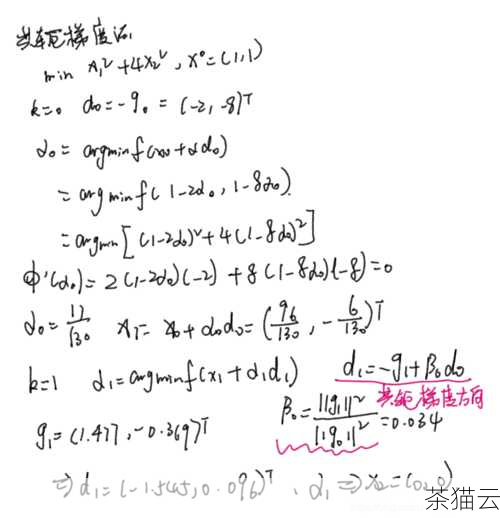 共轭梯度法,
min x₁²+4x₂², x⁰=(1,1)
k=0 d₀=-g₀=(-2,-8)ᵀ
α₀=argminf(x₀+αd₀)
=argminf(1-2α₀, 1-8α₀)
=argmin[(1-2α₀)²+4(1-8α₀)²]
Φ'(α₀)=2(1-2α₀)(-2)+8(1-8α₀)(-8)=0
α₀=17/130 x₁=x₀+α₀d₀=(96/130, -6/130)ᵀ
k=1 α₁=argminf(x₁+α₁d₁) d₁=-g₁+β₀d₀
共轭梯度方向
g₁=(1.477,-0.369)ᵀ β₀=||g₁||²/||g₀||²=0.034
⇒d₁=(-1.545,0.096)ᵀ, α₁⇒x₂=(0,0)
茶猫云